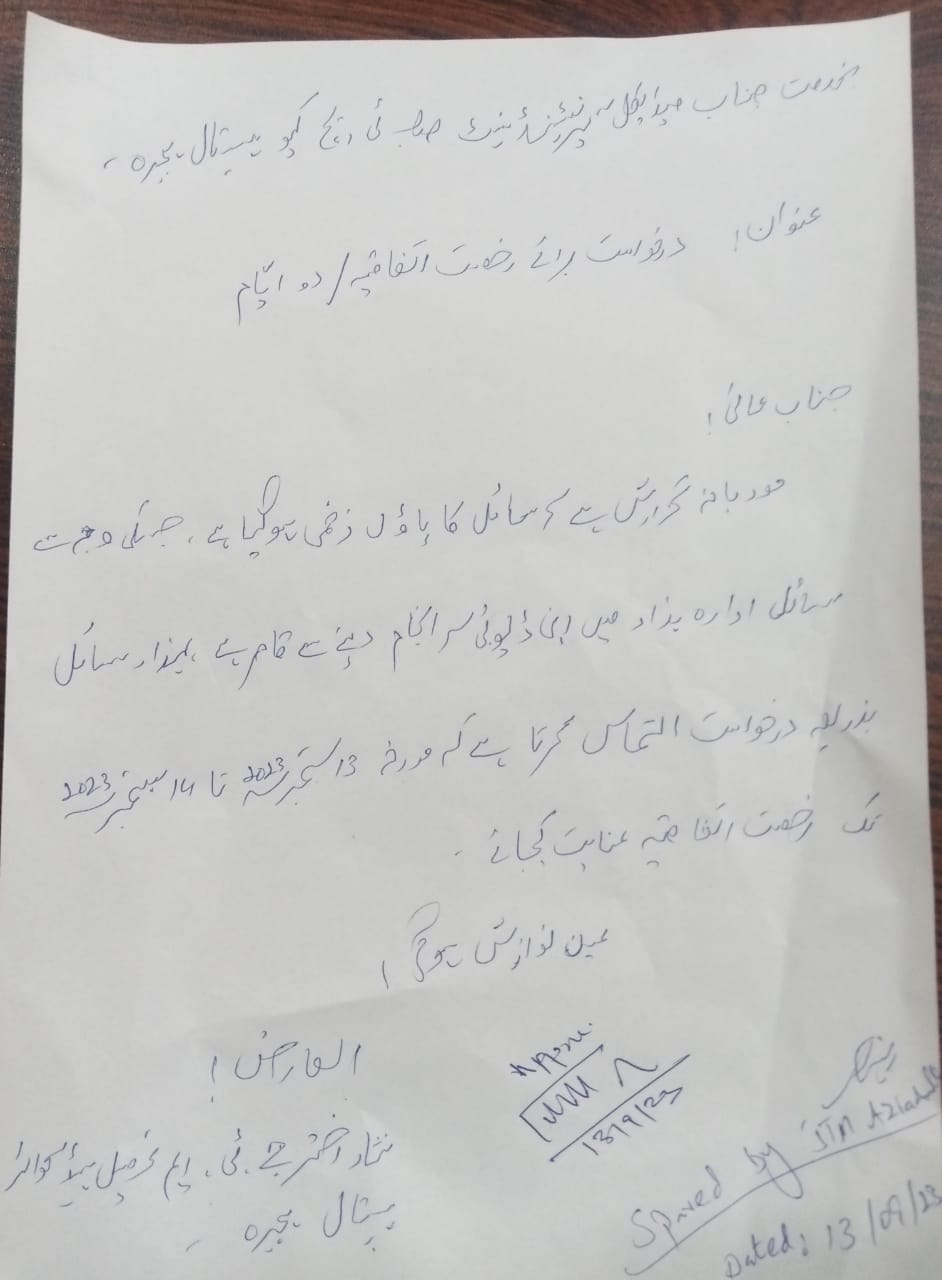 بخدمت جناب میڈیکل سپرنٹنڈنٹ صاحب ٹی ایچ کیو ہسپتال ہجیرہ۔
عنوان! درخواست برائے رخصت اتفاقیہ / دو ایام
جناب عالی!
مودبانہ گزارش ہے کہ سائل کا پاؤں زخمی ہو گیا ہے، جسکی وجہ سے
سائل ادارہ ہذا میں اپنی ڈیوٹی سرانجام دینے سے قاصر ہے، لہذا سائل
بذریعہ درخواست التماس کرتا ہے کہ مورخہ 13 ستمبر 2023 تا 14 ستمبر 2023
تک رخصت اتفاقیہ عنایت کیجائے۔
عین نوازش ہوگی!
العارض!
نثار اختر جے.ٹی. ایم تحصیل ہیڈ کوارٹر
ہسپتال ہجیرہ۔
13/9/23
Spared by
Dated: 13/09/23